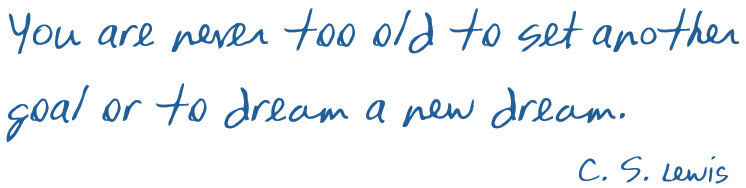 You are never too old to set another
goal or to dream a new dream.
C. S. Lewis